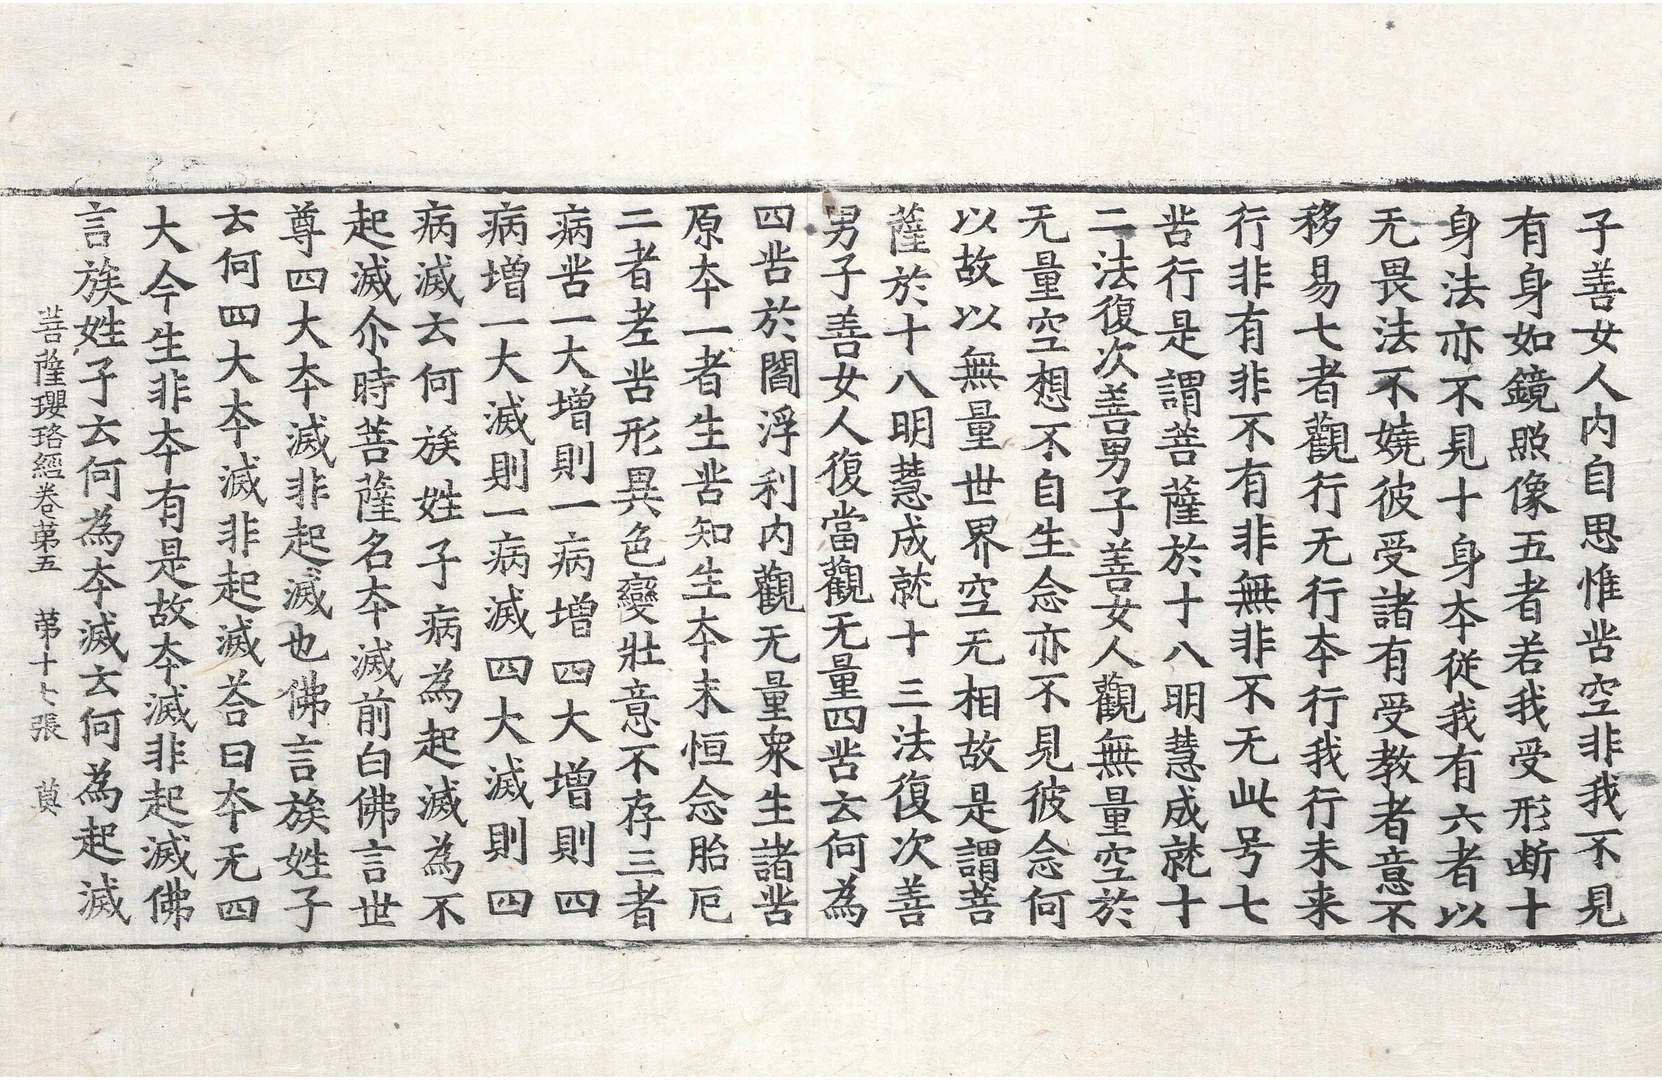 子善女人内自思惟苦空非我不見
有身如鏡照像五者若我受形断十
身法亦不見十身夲従我有六者以
无畏法不嬈彼受諸有受教者意不
移易七者觀行无行夲行我行未来
行非有非不有非無非不无此号七
苦行是謂菩薩於十八明慧成就十
二法復次善男子善女人觀無量空於
无量空想不自生念亦不見彼念何
以故以無量世界空无相故是謂菩
薩於十八明慧成就十三法復次善
男子善女人復當觀无量四苦云何為
四苦於閻浮利内觀无量衆生諸苦
原夲一者生苦知生夲末恒念胎厄
二者老苦形異色變壯意不存三者
病苦一大增則一病增四大增則四
病增一大滅則一病滅四大滅則四
病滅云何族姓子病為起滅為不
起滅尒時菩薩名夲滅前白佛言世
尊四大夲滅非起滅也佛言族姓子
云何四大夲滅非起滅荅曰夲无四
大今生非夲有是故夲滅非起滅佛
言族姓子云何為夲滅云何為起滅
菩薩瓔珞經卷苐五 苐十七張 莫